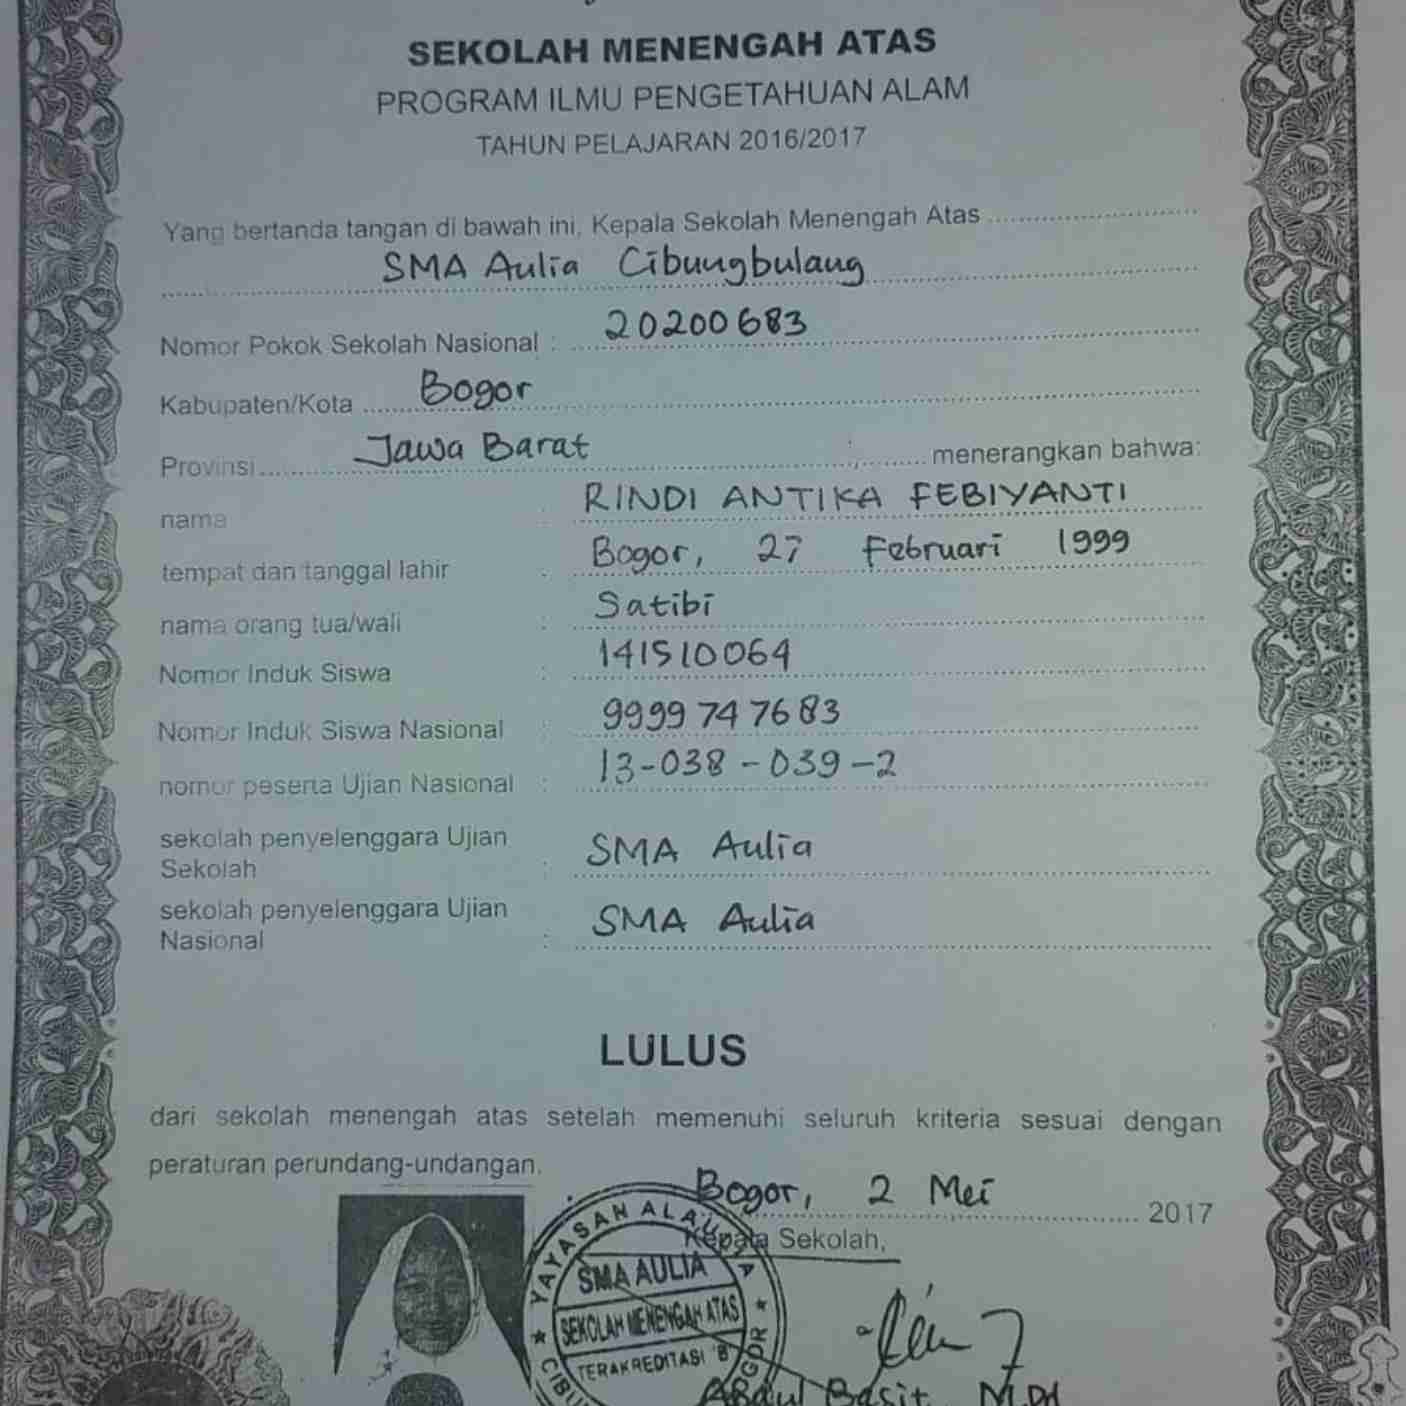 SEKOLAH MENENGAH ATAS
PROGRAM ILMU PENGETAHUAN ALAM
TAHUN PELAJARAN 2016/2017
Yang bertanda tangan di bawah ini, Kepala Sekolah Menengah Atas
SMA Aulia Cibungbulang
Nomor Pokok Sekolah Nasional : 20200683
Kabupaten/Kota Bogor
Provinsi Jawa Barat menerangkan bahwa:
nama : RINDI ANTIKA FEBIYANTI
tempat dan tanggal lahir : Bogor, 27 Februari 1999
nama orang tua/wali : Satibi
Nomor Induk Siswa : 141510064
Nomor Induk Siswa Nasional : 9999747683
nomor peserta Ujian Nasional : 13-038-039-2
sekolah penyelenggara Ujian
Sekolah : SMA Aulia
sekolah penyelenggara Ujian
Nasional : SMA Aulia
LULUS
dari sekolah menengah atas setelah memenuhi seluruh kriteria sesuai dengan
peraturan perundang-undangan.
Bogor, 2 Mei 2017
Kepala Sekolah,
YAYASAN
SMA AULIA
SEKOLAH MENENGAH ATAS
TERAKREDITASI "B"
Abdul Basit, M.Pd